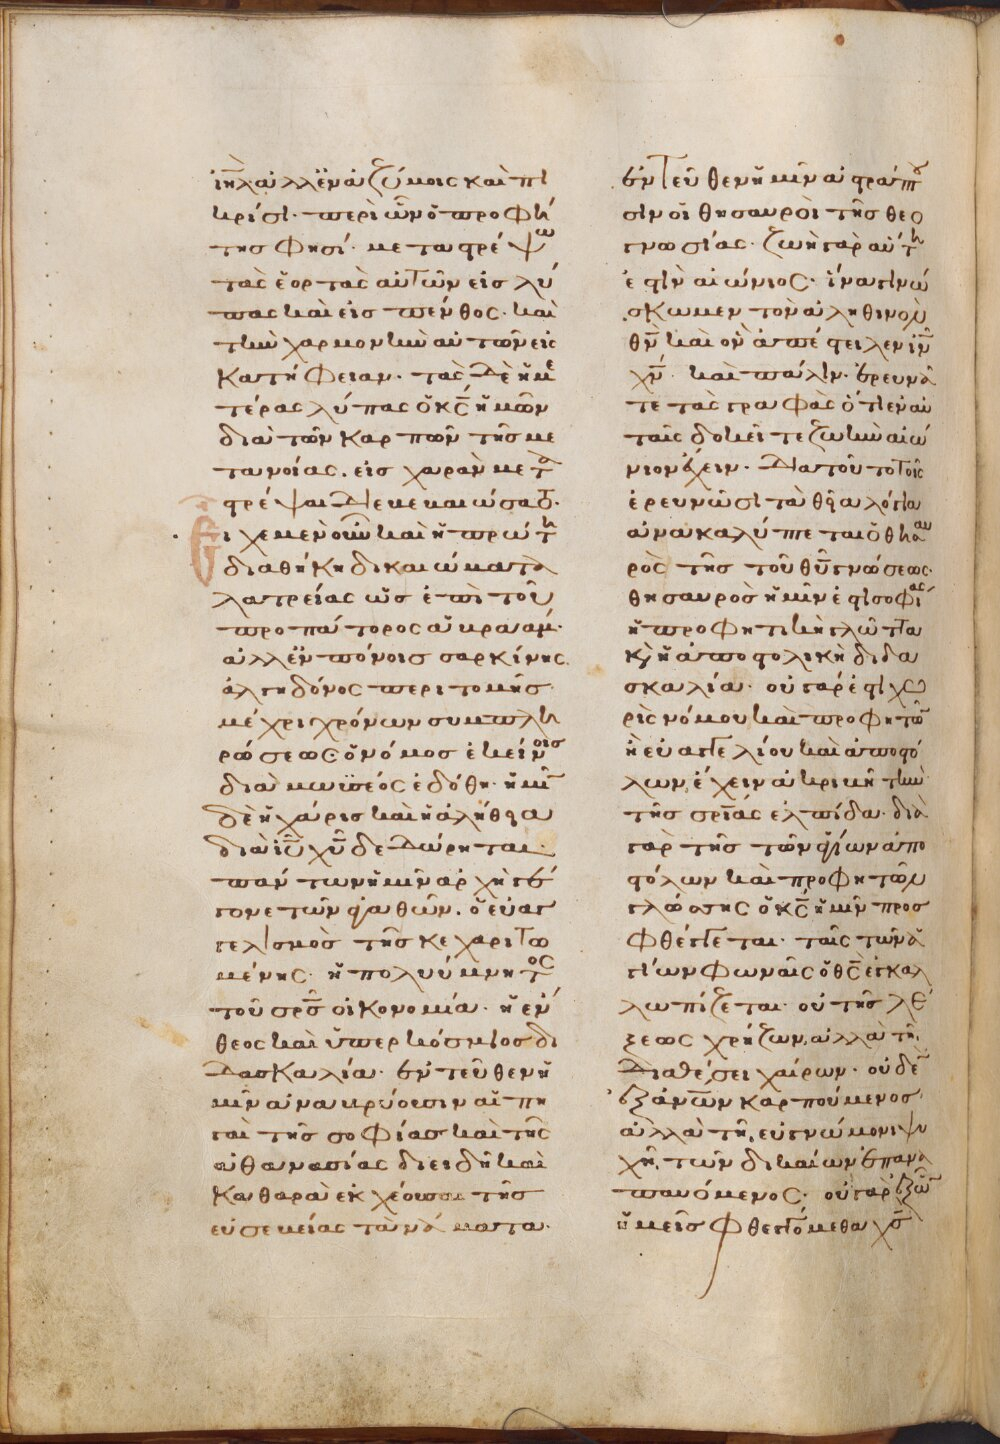 ἰῆλ ἀλλ ἐν ἀζύμοις καὶ πι
κρίσι· περὶ ὧν ὁ προφή
της φησί· μεταστρέψω
τὰς ἑορτὰς αὐτῶν εἰς λύ
πας καὶ εἰς πένθος· καὶ
τὴν χαρμονὴν αὐτῶν εἰς
κατήφειαν· τὰς δὲ ἡμε
τέρας λύπας ὁ κς ἡμῶν
διὰ τῶν καρπῶν τῆς με
τανοίας· εἰς χαρὰν μετα
στρέψαι
Εἶχε μὲν οὖν καὶ ἡ πρώτη
διαθήκη δικαιώματα
λατρείας ὡς ἐπὶ τοῦ
προπάτορος ἀβραάμ·
ἀλλ ἐν πόνοις σαρκίνης
ἀλγηδόνος περιτομῆς·
μέχρι χρόνων συμπλη
ρώσεως ὁ νόμος ἐκείνοις
διὰ μωϋσέος ἐδόθη· ἡμῖν
δὲ ἡ χάρις καὶ ἡ ἀλήθεια
διὰ ιυ χυ δεδώρηται·
πάντων ἡμῖν ἀρχὴ γέ
γονε τῶν ἀγαθῶν· ὁ εὐαγ
γελισμὸς τῆς κεχαριτω
μένης· ἡ πολυύμνητος
τοῦ σρς οἰκονομία· ἡ ἔν
θεος καὶ ὑπερκόσμιος δι
δασκαλία· ἐντεῦθεν ἡ
μῖν ἀναβρύουσιν αἱ πη
γαὶ τῆς σοφίας καὶ τῆς
ἀθανασίας διειδῆ καὶ
καθαρὰ ἐκχέουσαι τῆς
εὐσεβείας τὰ νάματα·
ἐντεῦθεν ἡμῖν ἀστράπτου
σιν οἱ θησαυροὶ τῆς θεο
γνωσίας· ζωὴ γὰρ αὕτη
ἐστὶν αἰώνιος· ἵνα γινώ
σκωμεν τὸν ἀληθινὸν
θν καὶ ὃν ἀπέστειλεν ιν
χν· καὶ πάλιν· ἐρευνᾶ
τε τὰς γραφὰς ὅτι ἐν αὐ
ταῖς δοκεῖτε ζωὴν αἰώ
νιον ἔχειν· διὰ τοῦτο τοῖς
ἐρευνῶσι τὰ θεῖα λόγια
ἀνακαλύπτεται ὁ θησαυ
ρὸς τῆς τοῦ θυ γνώσεως·
θησαυρὸς ἡμῖν ἐστι σοφίας
ἡ προφητικὴ γλῶττα
κ ἡ ἀποστολικὴ διδα
σκαλία· οὐ γάρ ἐστι χω
ρὶς νόμου καὶ προφητῶν
ἢ εὐαγγελίου καὶ ἀποστό
λων, ἔχειν ἀκριβῆ τὴν
τῆς σριας ἐλπίδα· διὰ
γὰρ τῆς τῶν ἁγίων ἀπο
στόλων καὶ προφητῶν
γλώσσης ὁ κς ἡμῖν προσ
φθέγγεται· ταῖς τῶν ἁ
γίων φωναῖς ὁ θς ἐγκαλ
λωπίζεται· οὐ τῆς λέ
ξεως χρήζων, ἀλλὰ τῇ
διαθέσει χαίρων· οὐδὲ
ἐξ ἀνων καρπούμενος·
ἀλλὰ τῇ εὐγνώμονι ψυ
χῇ τῶν δικαίων ἐπανα
παυόμενος· οὐ γὰρ ἐξ ὧν
ἡμεῖς φθεγγόμεθα χς